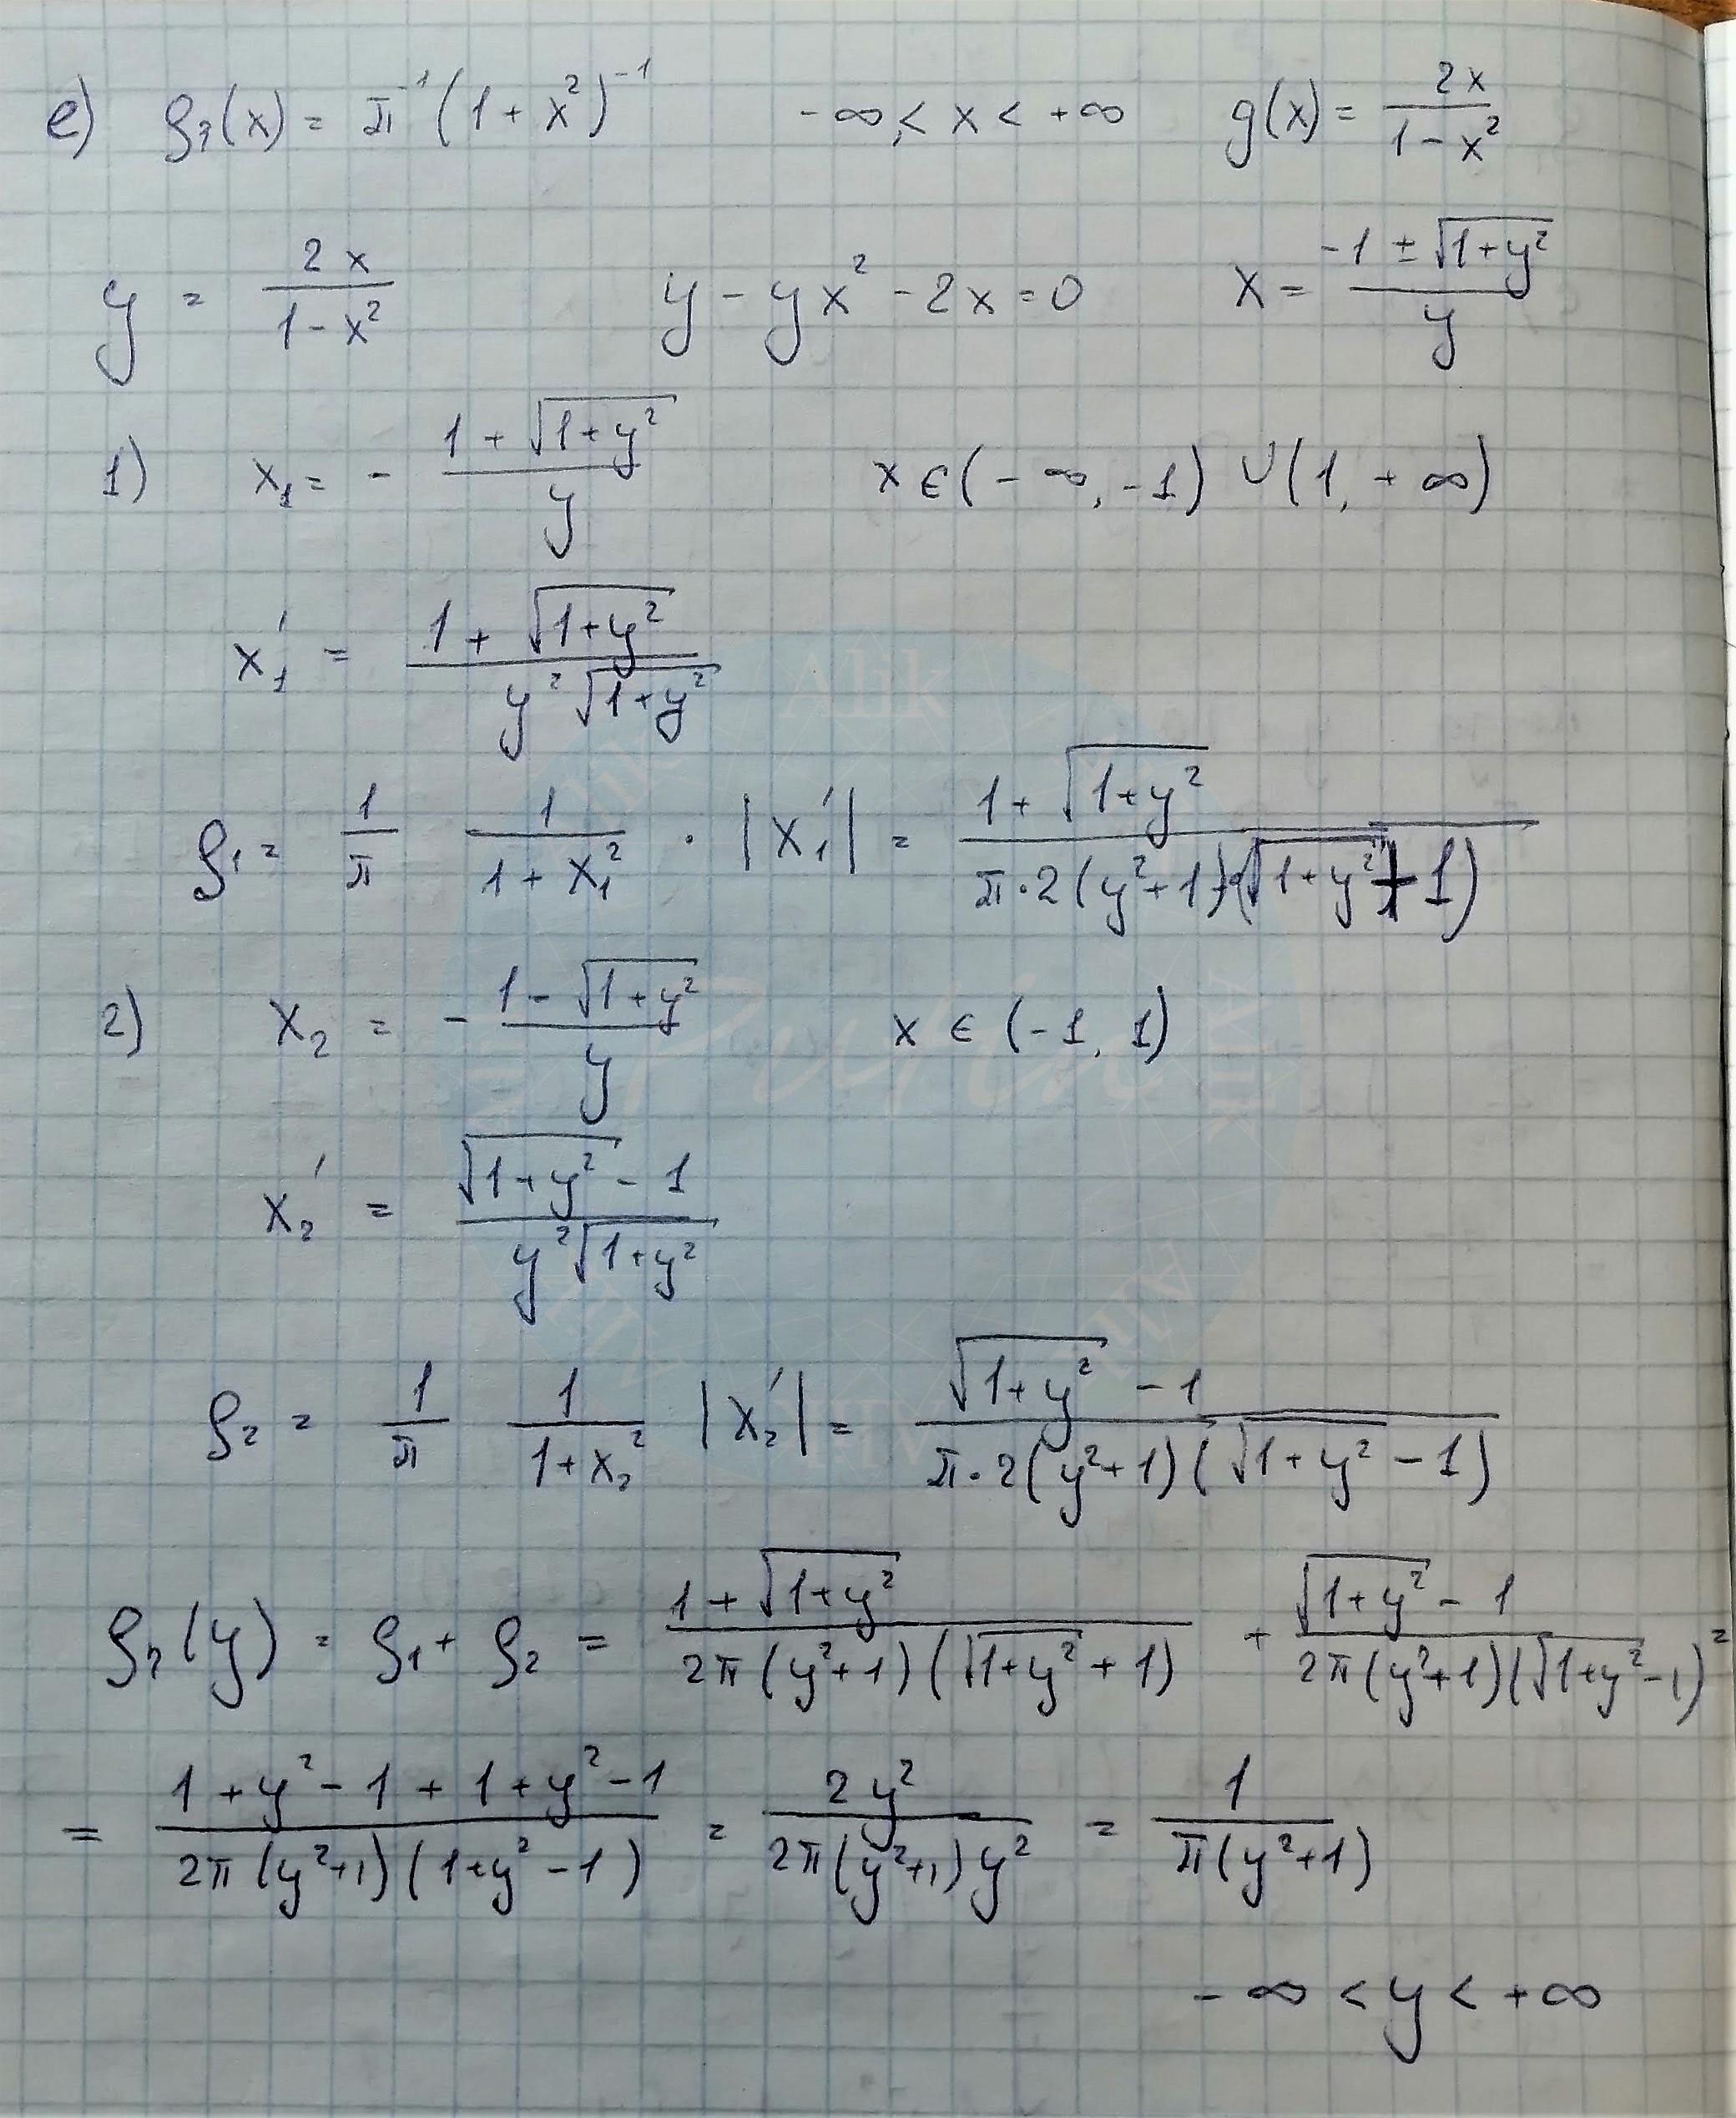 e) ρ₂(x) = π⁻¹(1 + x²)⁻¹ -∞ < x < +∞ g(x) = 2x / (1 - x²)
y = 2x / (1 - x²) y - yx² - 2x = 0 x = (-1 ± √(1+y²)) / y
1) x₁ = - (1 + √(1+y²)) / y x ∈ (-∞, -1) ∪ (1, +∞)
x₁' = (1 + √(1+y²)) / (y²√(1+y²))
ρ₁ = 1/π 1/(1 + x₁²) · |x₁'| = (1 + √(1+y²)) / (π·2(y²+1)·(√(1+y²) + 1))
2) x₂ = - (1 - √(1+y²)) / y x ∈ (-1, 1)
x₂' = (√(1+y²) - 1) / (y²√(1+y²))
ρ₂ = 1/π 1/(1+x₂²) |x₂'| = (√(1+y²) - 1) / (π·2(y²+1)(√(1+y²) - 1))
ρ₂(y) = ρ₁ + ρ₂ = (1 + √(1+y²)) / (2π(y²+1)(√(1+y²) + 1)) + (√(1+y²) - 1) / (2π(y²+1)(√(1+y²) - 1)) =
= (1 + y² - 1 + 1 + y² - 1) / (2π(y²+1)(1+y² - 1)) = 2y² / (2π(y²+1)y²) = 1 / (π(y²+1))
-∞ < y < +∞
Alik